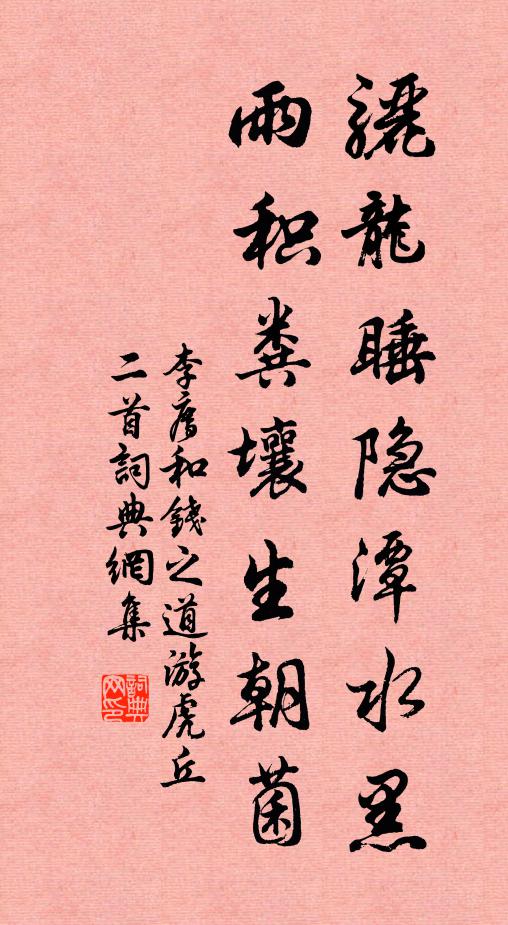 骊龍睡隐潭水黑
雨积粪壤生朝菌
李廌和錢之道游虎丘
二首詞典網集
詞典網印